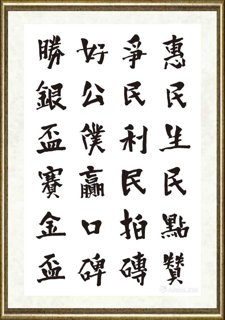 惠民生民點贊
爭民利民拍磚
好公僕贏口碑
勝銀盃賽金盃